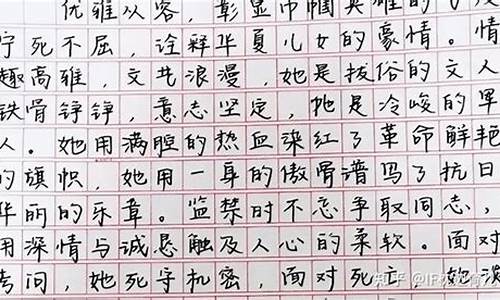 优雅从容，彰显巾帼英雄的
宁死不屈，诠释华夏儿女的豪情。情
趣高雅，文艺浪漫，她是拔俗的文人
铁骨铮铮，意志坚定，她是冷峻的军
人。她用满腔的热血染红了革命鲜艳
的旗帜，她用一身的傲骨谱写了抗日
华丽的乐章。监禁时不忘争取同志，
用深情与诚恳触及人心的柔软。面对
拷问，她死守机密，面对死
知乎 @IF